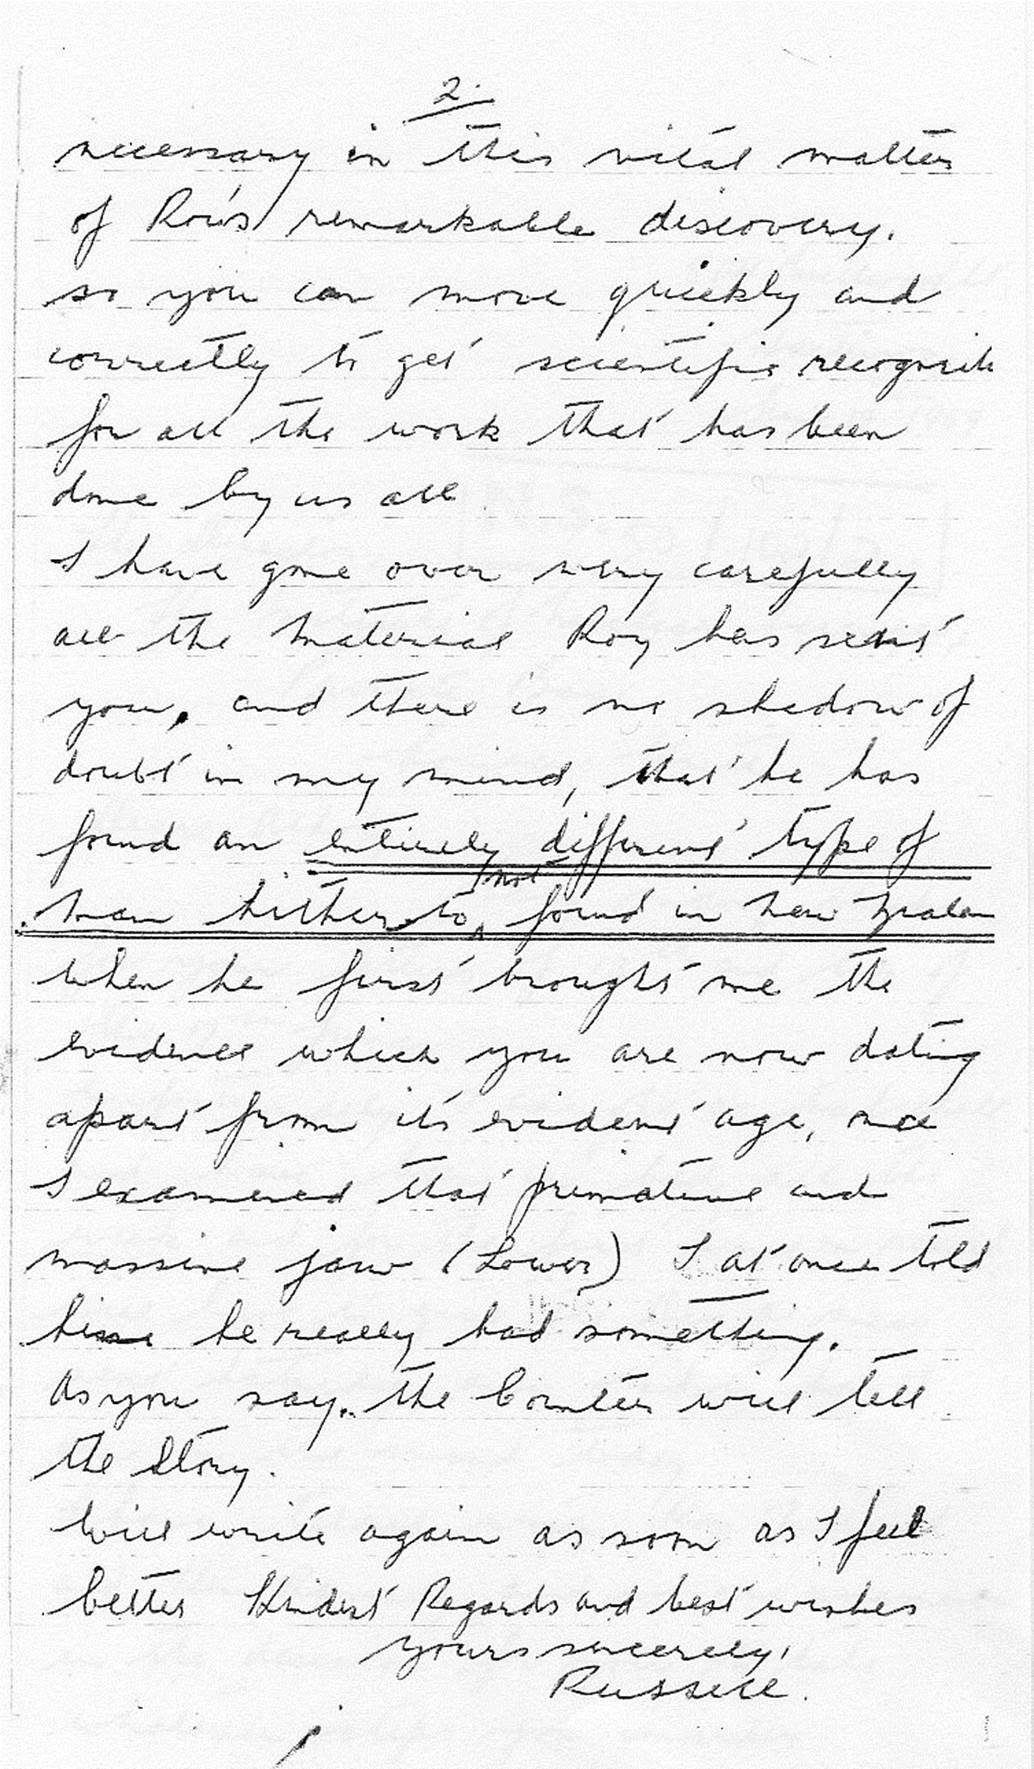 2.
necessary in this vital matter
of Roy's remarkable discovery.
so you can move quickly and
correctly to get scientific recogniti
for all the work that has been
done by us all
I have gone over very carefully
all the material Roy has sent
you, and there is no shadow of
doubt in my mind, that he has
found an entirely different type of
not
man hither to found in New Zealan
when he first brought me the
evidence which you are now dating
apart from its evident age, once
I examined that primative and
massive jaw (Lower) I at once told
him he really had something.
As you say. the Counter will tell
the story.
Will write again as soon as I feel
better Kindest Regards and best wishes
yours sincerely,
Russell.